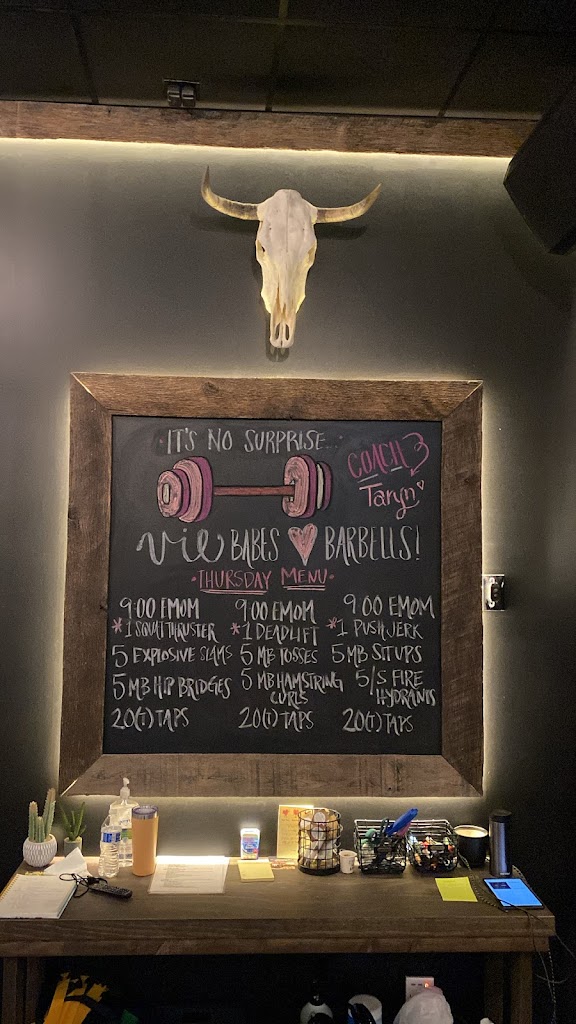 IT'S NO SURPRISE...
COACH
Taryn
vie BABES BARBELLS!
·THURSDAY MENU·
9:00 EMOM
*1 SQUAT THRUSTER
5 EXPLOSIVE SLAMS
5 MB HIP BRIDGES
20(T) TAPS
9:00 EMOM
*1 DEADLIFT
5 MB TOSSES
5 MB HAMSTRING
CURLS
20(T) TAPS
9:00 EMOM
*1 PUSH JERK
5 MB SIT UPS
5/S FIRE
HYDRANTS
20(T) TAPS